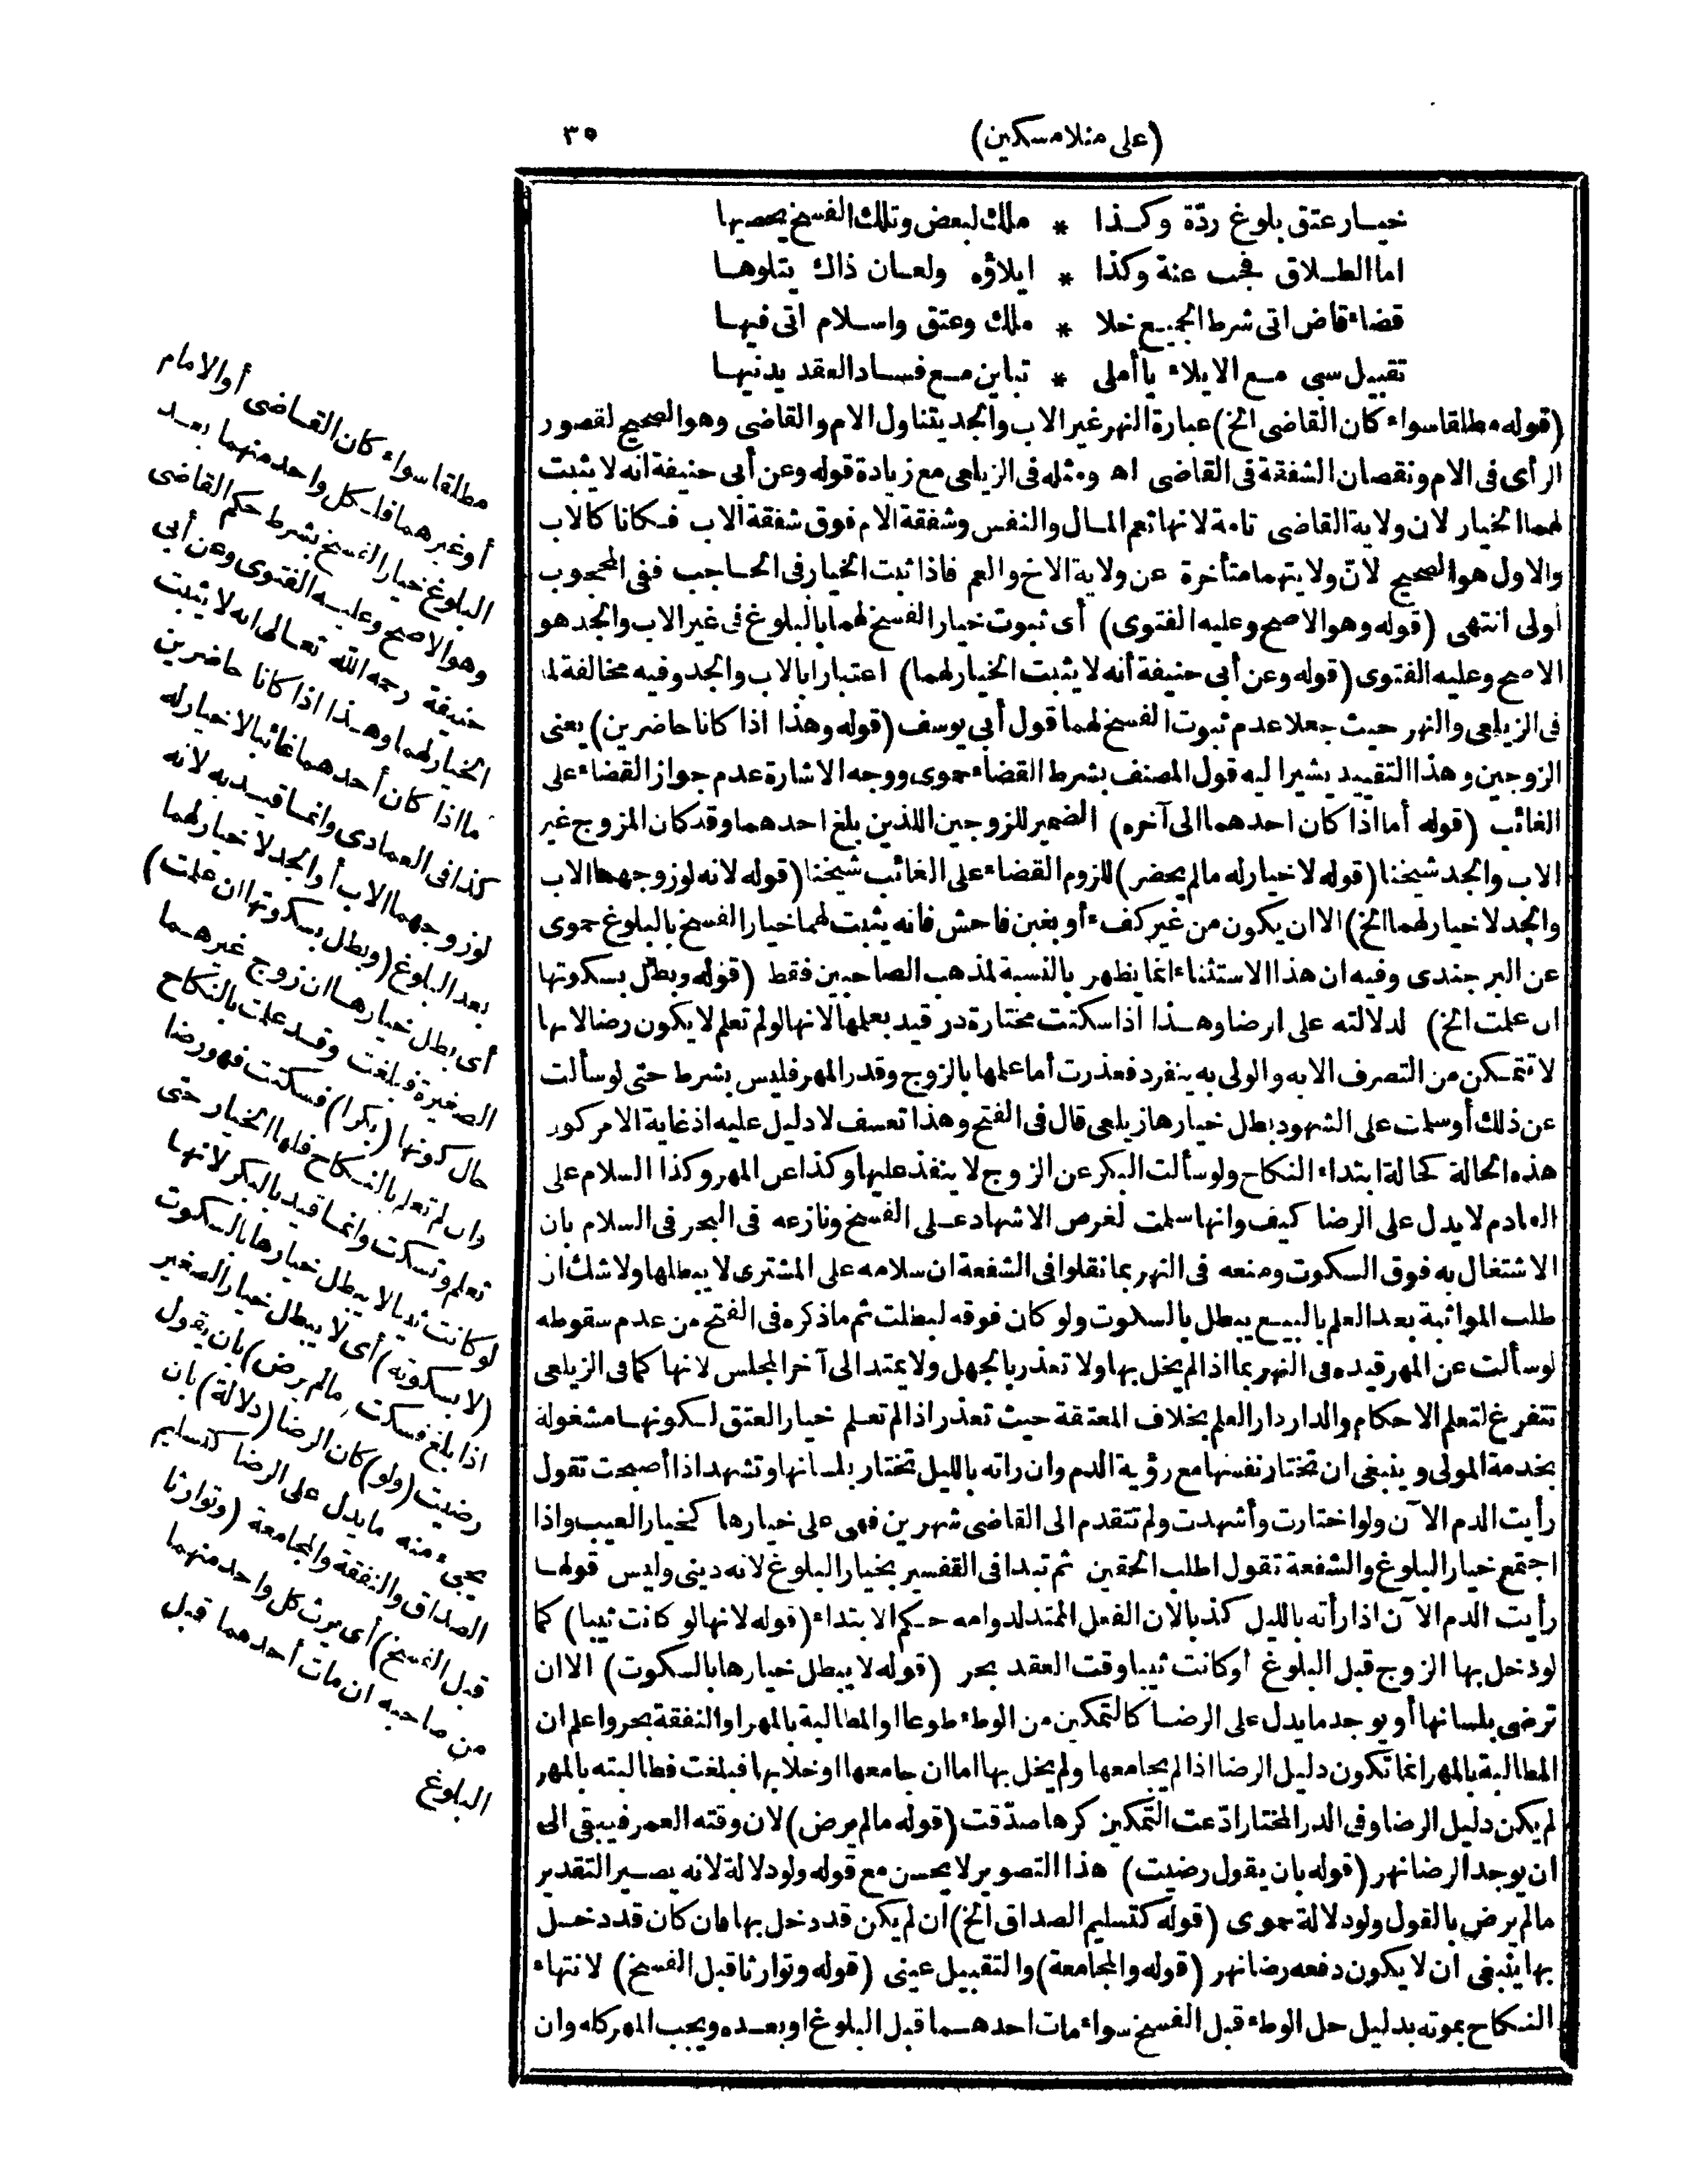 (على منلا مسكين)
٣٥
خيار عتق بلوغ ردّة وكذا * ملك لبعض وتلك الفسخ يحصيها
اما الطلاق فجب عنة وكذا * ايلاؤه ولعان ذاك يتلوها
قضاء قاض اتى شرط الجميع خلا * ملك وعتق واسلام اتى فيها
تقبيل سبى مع الايلاء يا أملى * تباين مع فساد العقد يدنيها
(قوله مطلقا سواء كان القاضى الخ) عبارة النهر غير الاب والجد يتناول الام والقاضى وهو الصحيح لقصور
الرأى فى الام ونقصان الشفقة فى القاضى اه ومثله فى الزيلعى مع زيادة قوله وعن أبى حنيفة انه لا يثبت
لهما الخيار لان ولاية القاضى تامة لانها تعم المال والنفس وشفقة الام فوق شفقة الاب فكانا كالاب
والاول هو الصحيح لانّ ولايتهما متأخرة عن ولاية الاخ والعم فاذا ثبت الخيار فى الحاجب ففى المحجوب
أولى انتهى (قوله وهو الاصح وعليه الفتوى) أى ثبوت خيار الفسخ لهما بالبلوغ فى غير الاب والجد هو
الاصح وعليه الفتوى (قوله وعن أبى حنيفة أنه لا يثبت الخيار لهما) اعتبارا بالاب والجد وفيه مخالفة لما
فى الزيلعى والنهر حيث جعلا عدم ثبوت الفسخ لهما قول أبى يوسف (قوله وهذا اذا كانا حاضرين) يعنى
الزوجين وهذا التقييد يشير اليه قول المصنف بشرط القضاء حموى ووجه الاشارة عدم جواز القضاء على
الغائب (قوله أما اذا كان احدهما الى آخره) الضمير للزوجين اللذين بلغ احدهما وقد كان المزوج غير
الاب والجد شيخنا (قوله لا خيار له مالم يحضر) للزوم القضاء على الغائب شيخنا (قوله لانه لو زوجهما الاب
والجد لا خيار لهما الخ) الا ان يكون من غير كفء أو بغبن فاحش فانه يثبت لهما خيار الفسخ بالبلوغ حموى
عن البرجندى وفيه ان هذا الاستثناء انما يظهر بالنسبة لمذهب الصاحبين فقط (قوله وبطل بسكوتها
ان علمت الخ) لدلالته على الرضا وهذا اذا سكتت مختارة در قيد بعلمها لانها لو لم تعلم لا يكون رضا لانها
لا تتمكن من التصرف الا به والولى به ينفرد فعذرت أما علمها بالزوج وقدر المهر فليس بشرط حتى لو سألت
عن ذلك أو سلمت على الشهود بطل خيارها زيلعى قال فى الفتح وهذا تعسف لا دليل عليه اذ غاية الامر كون
هذه الحالة كحالة ابتداء النكاح ولو سألت البكر عن الزوج لا ينفذ عليها وكذا عن المهر وكذا السلام على
القادم لا يدل على الرضا كيف وانها سلمت لغرض الاشهاد على الفسخ ونازعه فى البحر فى السلام بان
الاشتغال به فوق السكوت ومنعه فى النهر بما نقلوا فى الشفعة ان سلامه على المشترى لا يبطلها ولا شك ان
طلب المواثبة بعد العلم بالبيع يبطل بالسكوت ولو كان فوقه لبطلت ثم ما ذكره فى الفتح من عدم سقوطه
لو سألت عن المهر قيده فى النهر بما اذا لم يخل بها ولا تعذر بالجهل ولا يمتد الى آخر المجلس لانها كما فى الزيلعى
تتفرغ لتعلم الاحكام والدار دار العلم بخلاف المعتقة حيث تعذر اذا لم تعلم خيار العتق لكونها مشغولة
بخدمة المولى وينبغى ان تختار نفسها مع رؤية الدم وان راته بالليل تختار بلسانها وتشهد اذا أصبحت تقول
رأيت الدم الآن ولو اختارت وأشهدت ولم تتقدم الى القاضى شهرين فهى على خيارها كخيار العيب واذا
اجتمع خيار البلوغ والشفعة تقول اطلب الحقين ثم تبدا فى التفسير بخيار البلوغ لانه دينى وليس قولها
رأيت الدم الآن اذا رأته بالليل كذبا لان الفعل الممتد لدوامه حكم الابتداء (قوله لانها لو كانت ثيبا) كما
لو دخل بها الزوج قبل البلوغ أو كانت ثيبا وقت العقد بحر (قوله لا يبطل خيارها بالسكوت) الا ان
ترضى بلسانها أو يوجد ما يدل على الرضا كالتمكين من الوطء طوعا او المطالبة بالمهر او النفقة بحر واعلم ان
المطالبة بالمهر انما تكون دليل الرضا اذا لم يجامعها ولم يخل بها اما ان جامعها او خلا بها فبلغت فطالبته بالمهر
لم يكن دليل الرضا وفى الدر المختار ادّعت التمكين كرها صدّقت (قوله مالم يرض) لان وقته العمر فيبقى الى
ان يوجد الرضا نهر (قوله بان يقول رضيت) هذا التصوير لا يحسن مع قوله ولو دلالة لانه يصير التقدير
مالم يرض بالقول ولو دلالة حموى (قوله كتسليم الصداق الخ) ان لم يكن قد دخل بها فان كان قد دخل
بها ينبغى ان لا يكون دفعه رضا نهر (قوله والمجامعة) والتقبيل عينى (قوله وتوارثا قبل الفسخ) لانتهاء
النكاح بموته بدليل حل الوطء قبل الفسخ سواء مات احدهما قبل البلوغ او بعده ويجب المهر كله وان
مطلقا سواء كان القاضى أو الامام
أو غيرهما فلكل واحد منهما بعد
البلوغ خيار الفسخ بشرط حكم القاضى
وهو الاصح وعليه الفتوى وعن أبى
حنيفة رحمه الله تعالى انه لا يثبت
الخيار لهما وهذا اذا كانا حاضرين
ما اذا كان أحدهما غائبا لا خيار له
كذا فى العمادى وانما قيد به لانه
لو زوجهما الاب أو الجد لا خيار لهما
بعد البلوغ (وبطل بسكوتها ان علمت)
أى بطل خيارها ان زوج غيرهما
الصغيرة فبلغت وقد علمت بالنكاح
حال كونها (بكرا) فسكتت فهو رضا
وان لم تعلم بالنكاح فلها الخيار حتى
تعلم وتسكت وانما قيد بالبكر لانها
لو كانت ثيبا لا يبطل خيارها بالسكوت
(لا بسكوته) أى لا يبطل خيار الصغير
اذا بلغ فسكت (مالم يرض) بان يقول
رضيت (ولو) كان الرضا (دلالة) بان
يجىء منه ما يدل على الرضا كتسليم
الصداق والنفقة والمجامعة (وتوارثا
قبل الفسخ) أى يرث كل واحد منهما
من صاحبه ان مات أحدهما قبل
البلوغ